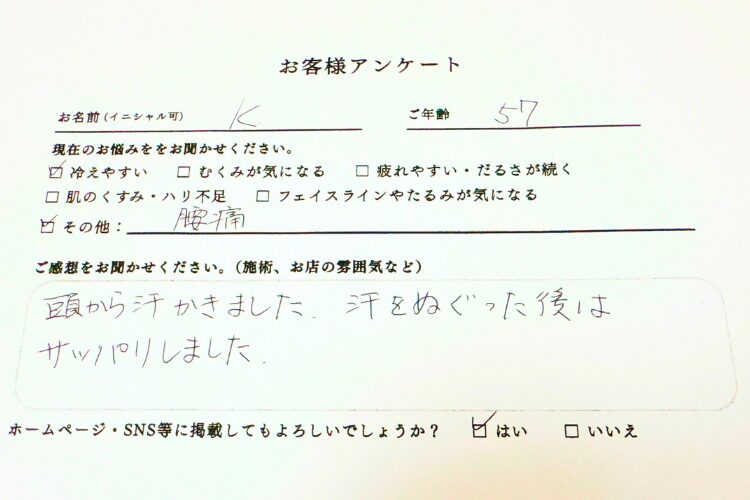 お客様アンケート
お名前(イニシャル可) K ご年齢 57
現在のお悩みををお聞かせください。
☑ 冷えやすい □ むくみが気になる □ 疲れやすい・だるさが続く
□ 肌のくすみ・ハリ不足 □ フェイスラインやたるみが気になる
☑ その他: 腰痛
ご感想をお聞かせください。(施術、お店の雰囲気など)
頭から汗かきました. 汗をぬぐった後は
サッパリしました.
ホームページ・SNS等に掲載してもよろしいでしょうか? ☑ はい □ いいえ